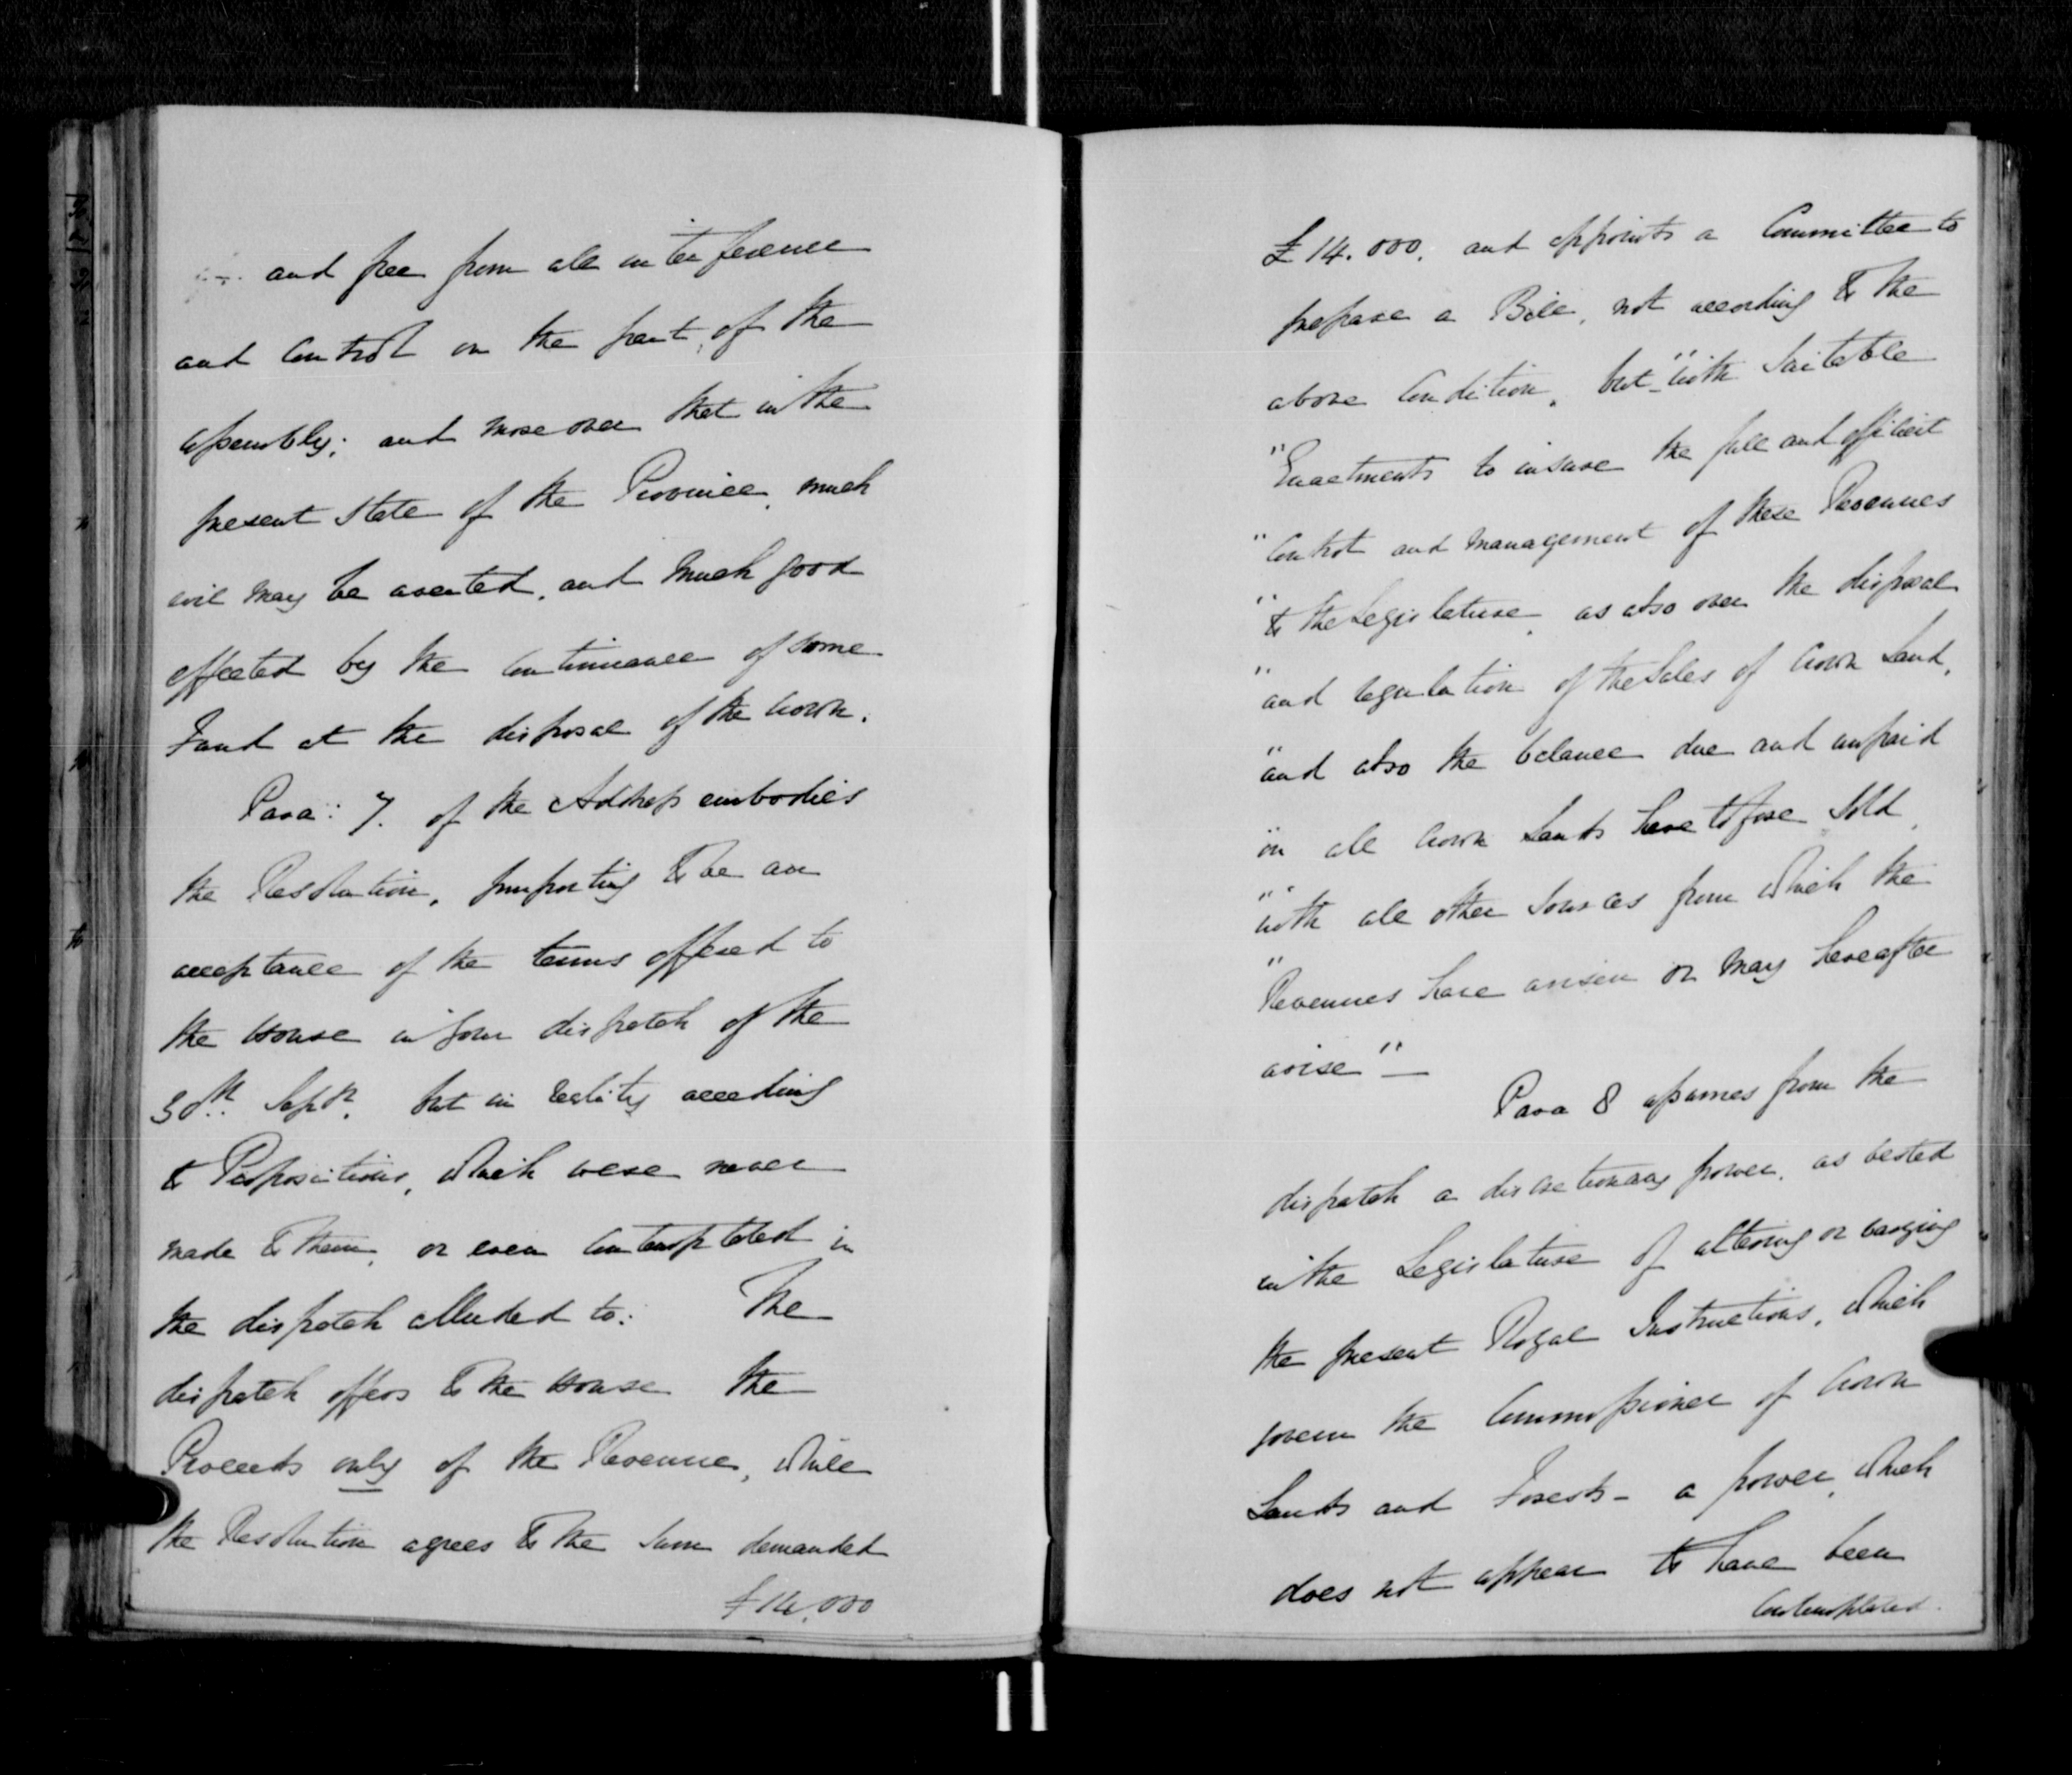 and free from all interference
and Control on the part, of the
assembly; and moreover that in the
present state of the Province, much
evil may be averted, and much good
effected by the Continuance of some
Fund at the disposal of the Crown.
Para: 7. of the Address embodies
the Resolution, purporting to be an
acceptance of the terms offered to
the House in your dispatch of the
30th Sepr. but in reality acceding
to Propositions, which were never
made to them, or even Contemplated in
the dispatch alluded to: The
dispatch offers to the House the
Proceeds only of the Revenue, while
the Resolution agrees to the Sum demanded
£14,000
£14.000. and appoints a Committee to
prepare a Bill, not according to the
above Condition, but "with Suitable
"Enactments to insure the full and efficient
"Control and management of these Revenues
"to the Legislature, as also over the disposal
"and regulation of the Sales of Crown Land,
"and also the balance due and unpaid
"on all Crown Lands heretofore Sold,
"with all other Sources from which the
"Revenues have arisen or may hereafter
arise" —
Para 8 assumes from the
dispatch a discretionary power, as vested
in the Legislature of altering or varying
the present Royal Instructions, which
govern the Commissioner of Crown
Lands and Forests - a power, which
does not appear to have been
Contemplated.